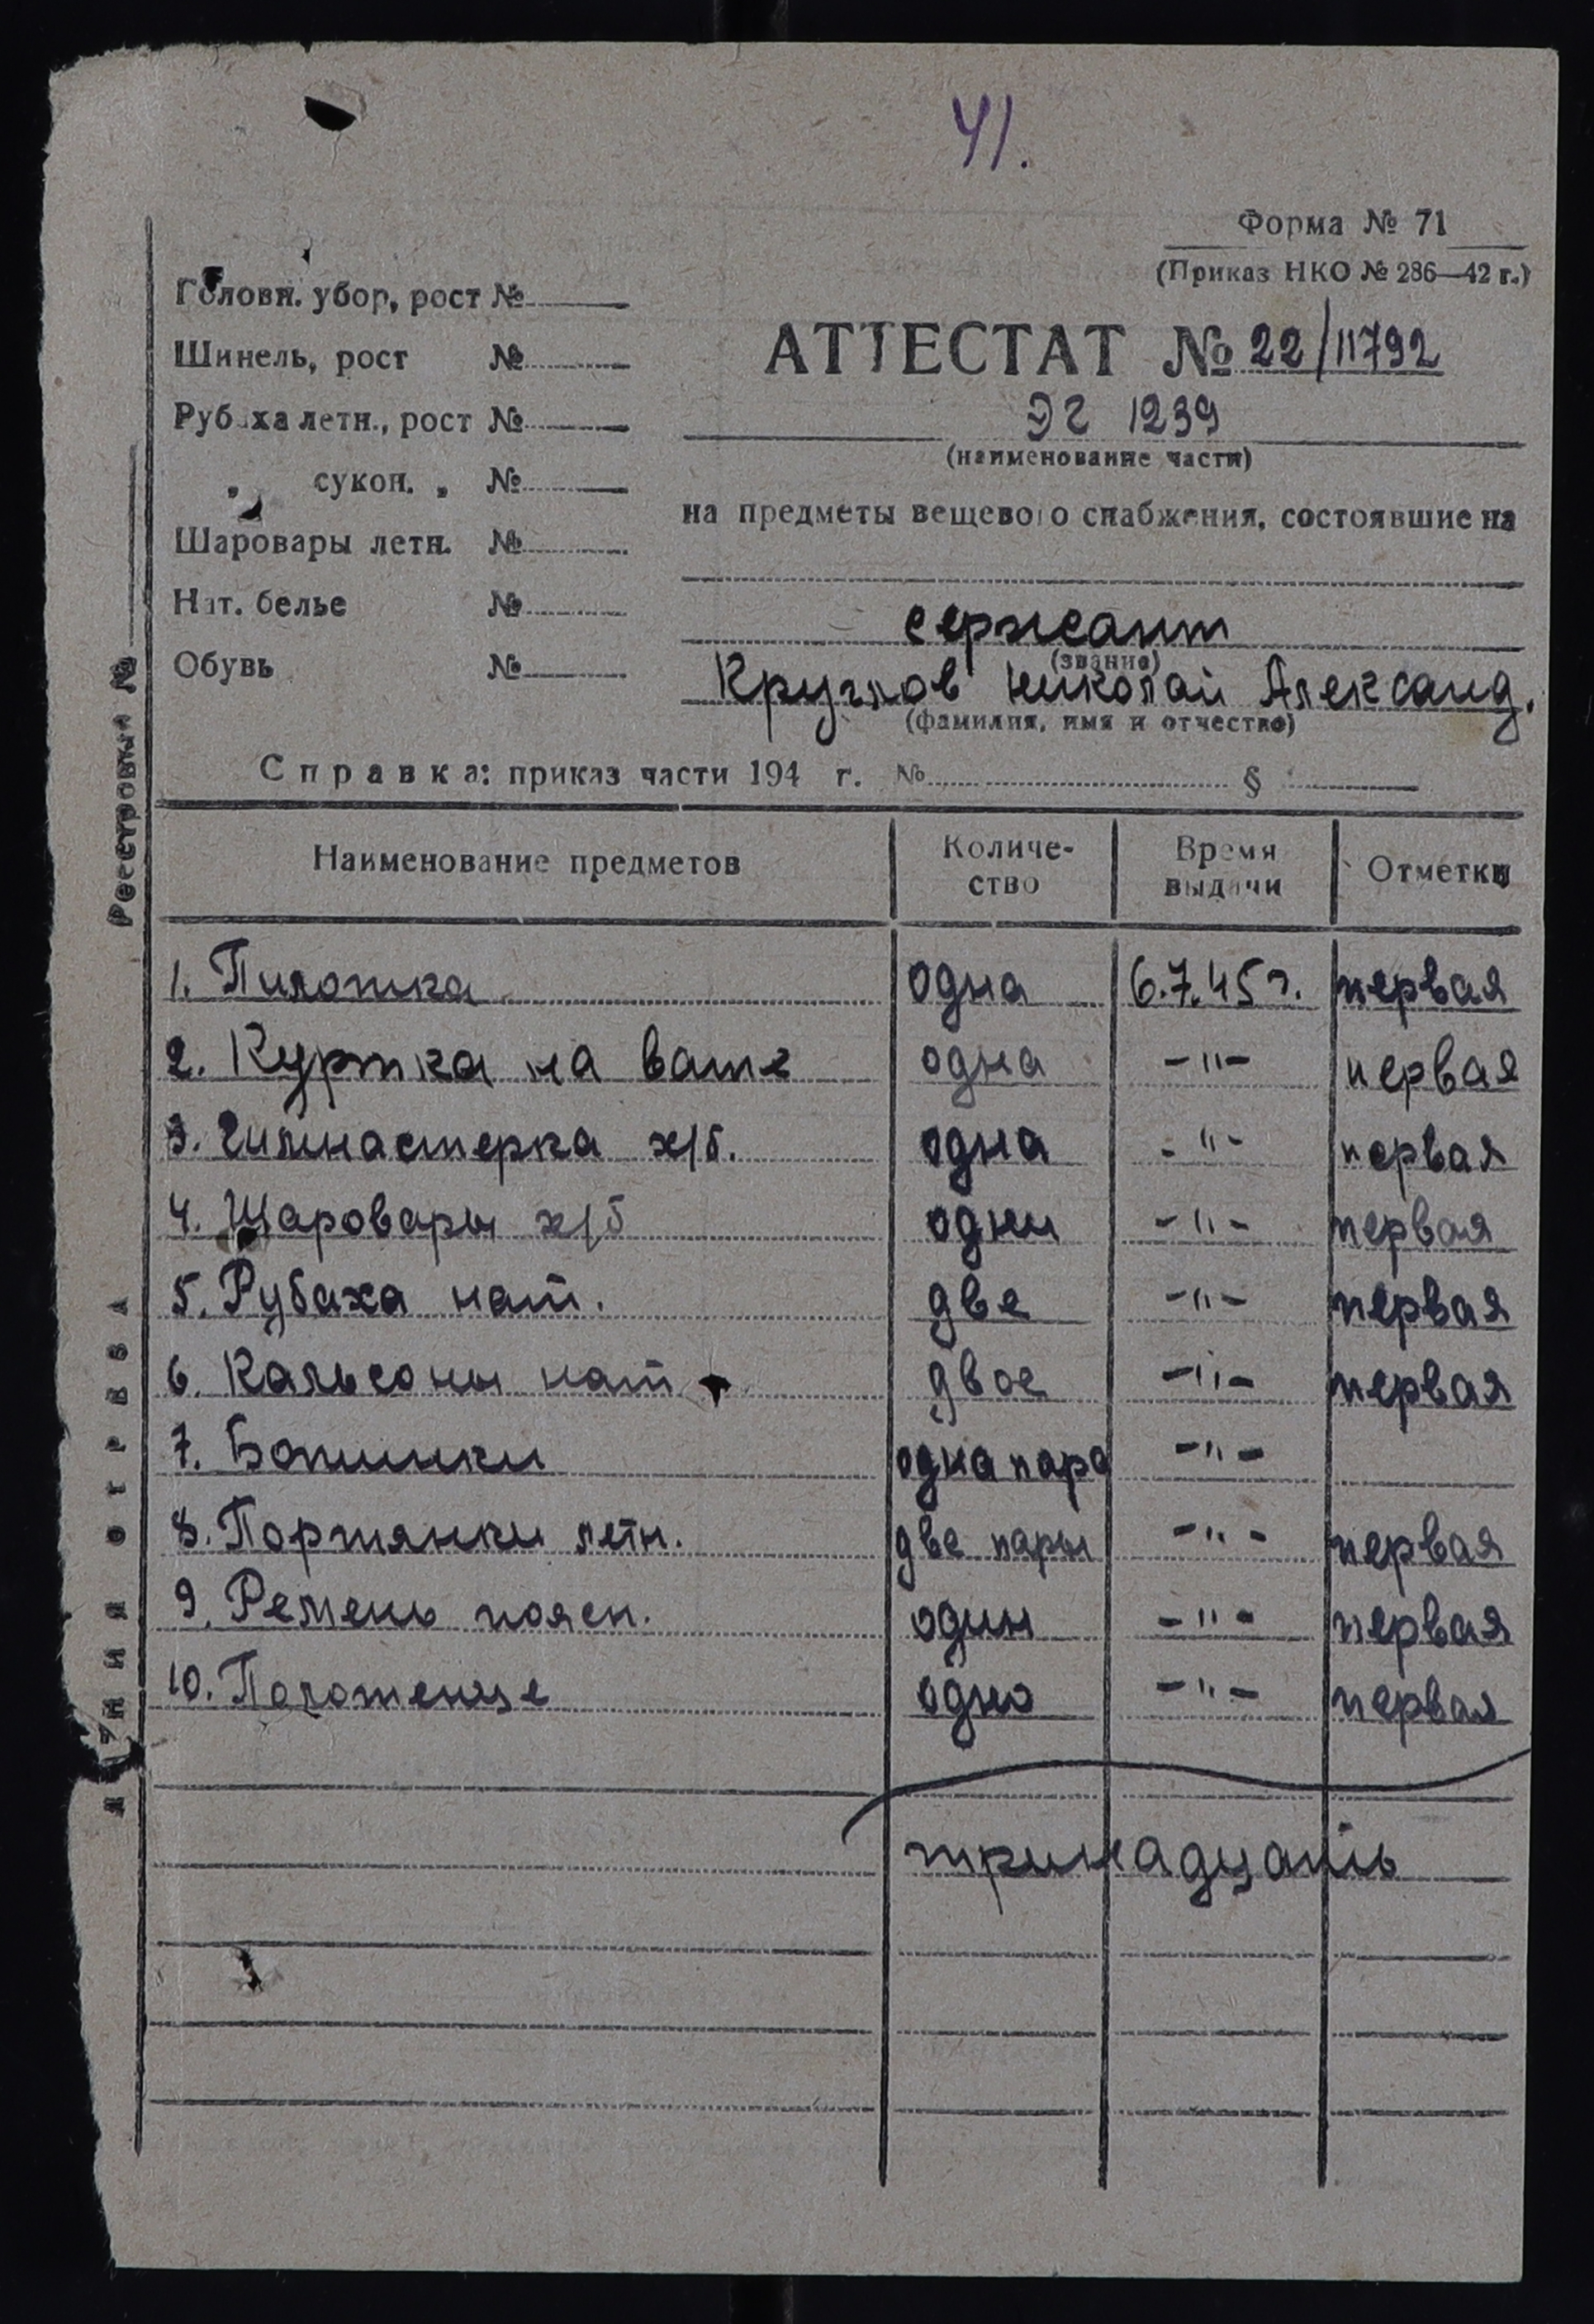 41.
Форма № 71
(Приказ НКО № 286—42 г.)
Головн. убор, рост №
Шинель, рост №
Рубаха летн., рост №
„ сукон. „ №
Шаровары летн. №
Нат. белье №
Обувь №
АТТЕСТАТ № 22/11792
ЭГ 1239
(наименование части)
на предметы вещевого снабжения, состоявшие на
сержант
(звание)
Круглов Николай Александ.
(фамилия, имя и отчество)
Справка: приказ части 194 г. № §
Реестровый №
ЛИНИЯ ОТРЕЗА
Наименование предметов Количе- Время Отметки
ство выдачи
1. Пилотка одна 6.7.45 г. первая
2. Куртка на вате одна -"- первая
3. Гимнастерка х/б. одна -"- первая
4. Шаровары х/б одни -"- первая
5. Рубаха нат. две -"- первая
6. Кальсоны нат двое -"- первая
7. Ботинки одна пара -"-
8. Портянки летн. две пары -"- первая
9. Ремень поясн. один -"- первая
10. Полотенце одно -"- первая
тринадцать